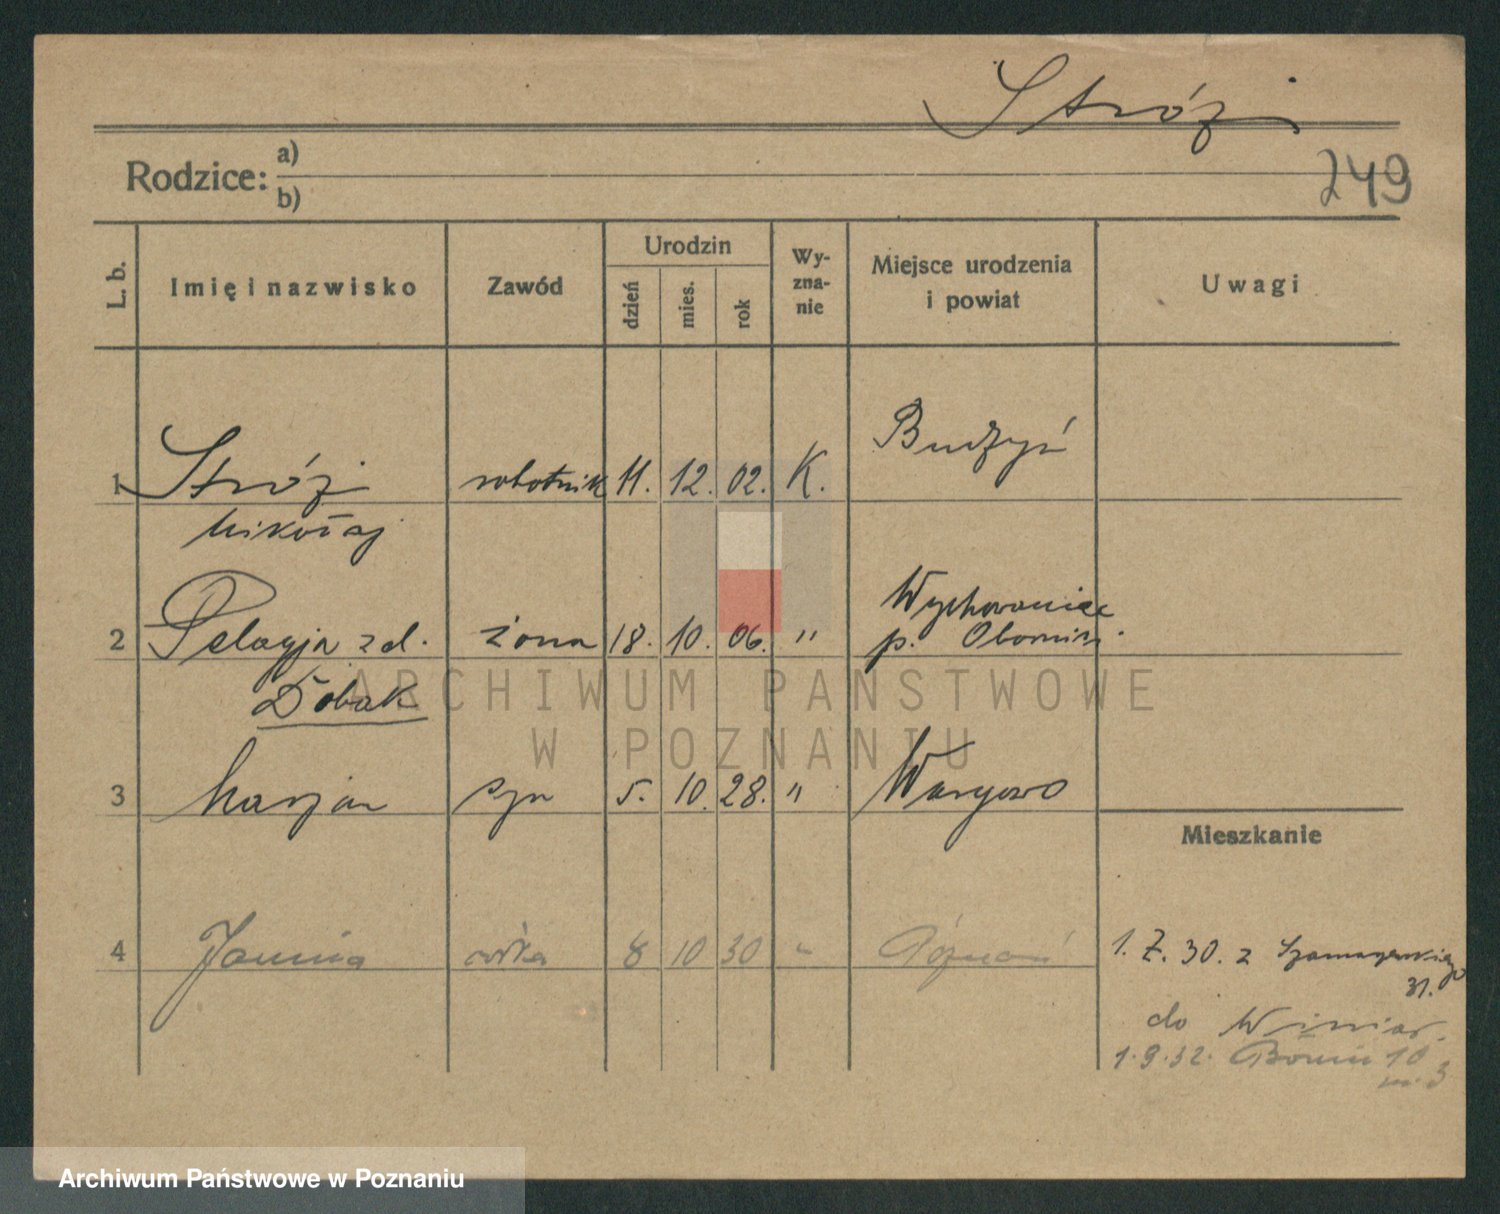 Stróż
249
Rodzice: a)
b)
L. b.
Imię i nazwisko
Zawód
Urodzin
dzień
mies.
rok
Wy-
zna-
nie
Miejsce urodzenia
i powiat
Uwagi
1 Stróż robotnik 11. 12. 02. K. Budzyń
Mikołaj
2 Pelagja zd. żona 18. 10. 06. " Wychowaniec
p. Oborniki
Dobak
3 Marjan syn 5. 10. 28. " Wargowo
Mieszkanie
4 Janina córka 8 10 30 " Poznań
1. 7. 30. z Szamarzewskiego
31.
do Winiar.
1.9.32. Bonin 10
m. 3
ARCHIWUM PAŃSTWOWE
W POZNANIU
Archiwum Państwowe w Poznaniu